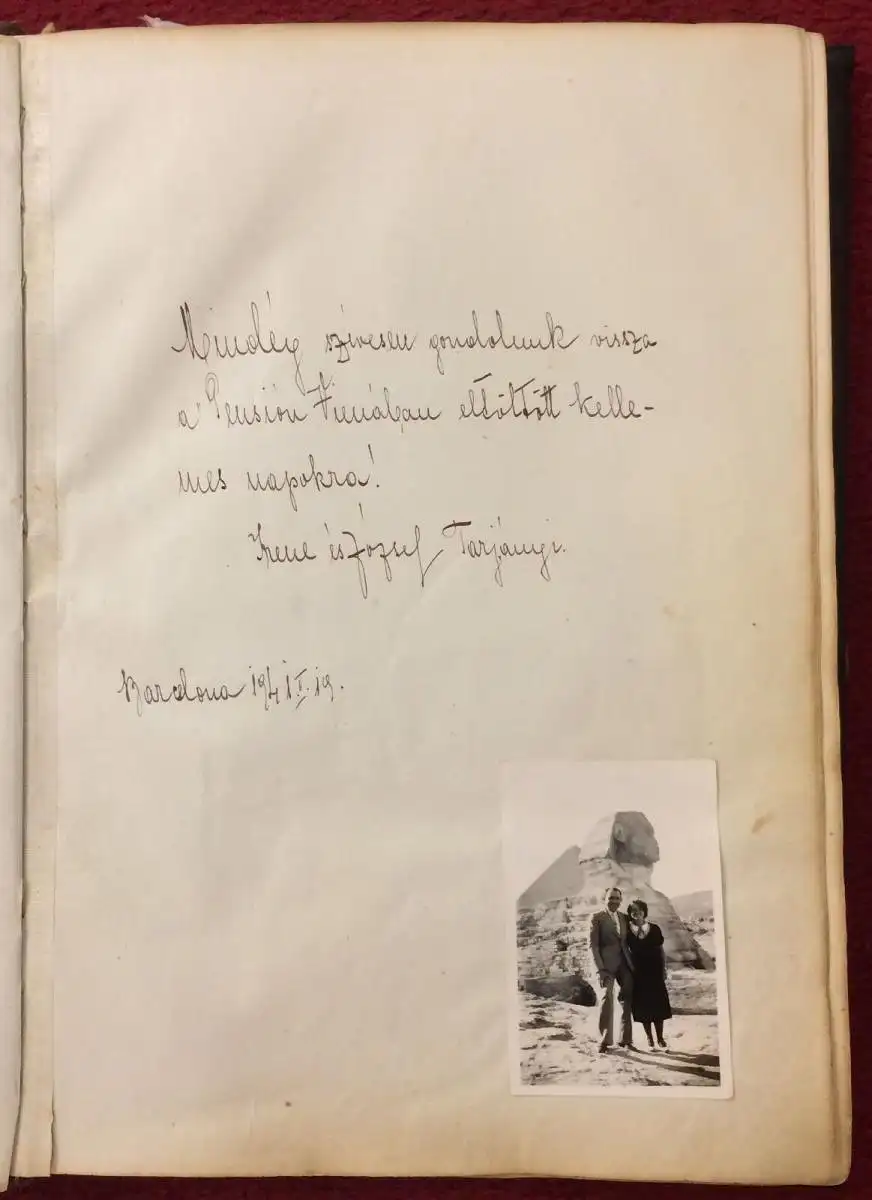 Mindég szívesen gondolunk vissza
a Pensión Vienában eltöltött kelle-
mes napokra!
Irene és József Tarjányi.
Barcelona 1941 I. 19.